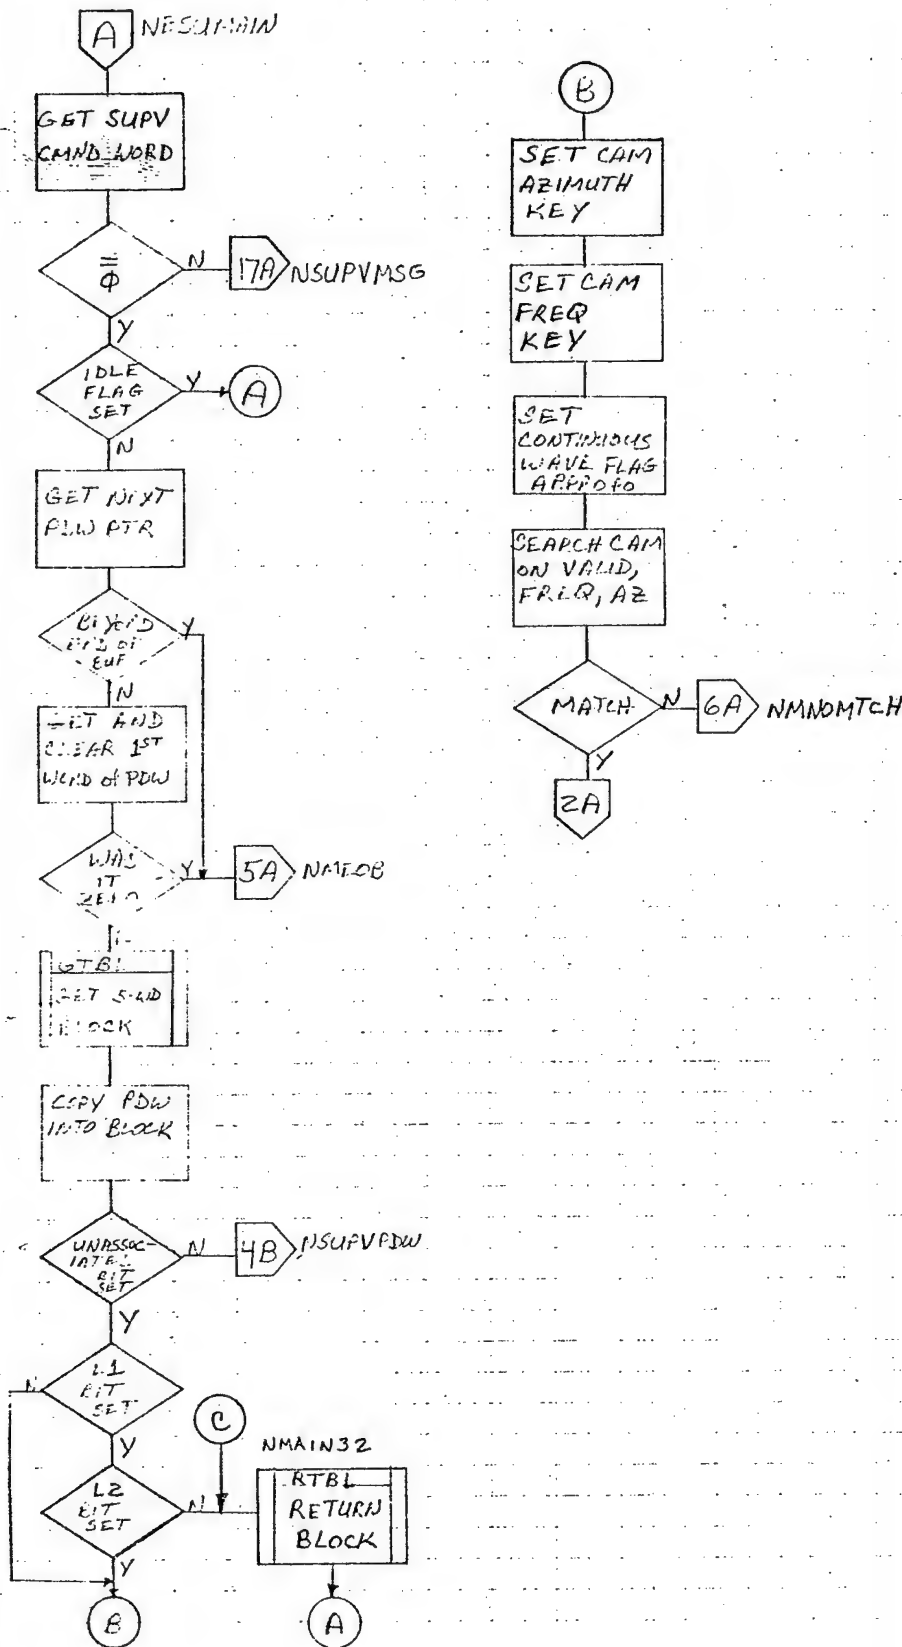 A NESUMAIN
GET SUPV
CMND WORD
=
Φ
N 17A NSUPVMSG
Y
IDLE
FLAG
SET
Y A
N
GET NEXT
PTR
Y
END OF
BUF
N
GET AND
CLEAR 1ST
WORD of PDW
WAS
IT
ZERO
Y 5A NMEOB
GTBL
GET 5-WD
BLOCK
COPY PDW
INTO BLOCK
UNASSOC-
IATED
BIT
SET
N 4B NSUPVPDW
Y
L1
BIT
SET
N
Y
C
L2
BIT
SET
N
NMAIN32
RTBL
RETURN
BLOCK
Y
B
A
B
SET CAM
AZIMUTH
KEY
SET CAM
FREQ
KEY
SET
CONTINUOUS
WAVE FLAG
SEARCH CAM
ON VALID,
FREQ, AZ
MATCH
N 6A NMNOMTCH
Y
2A